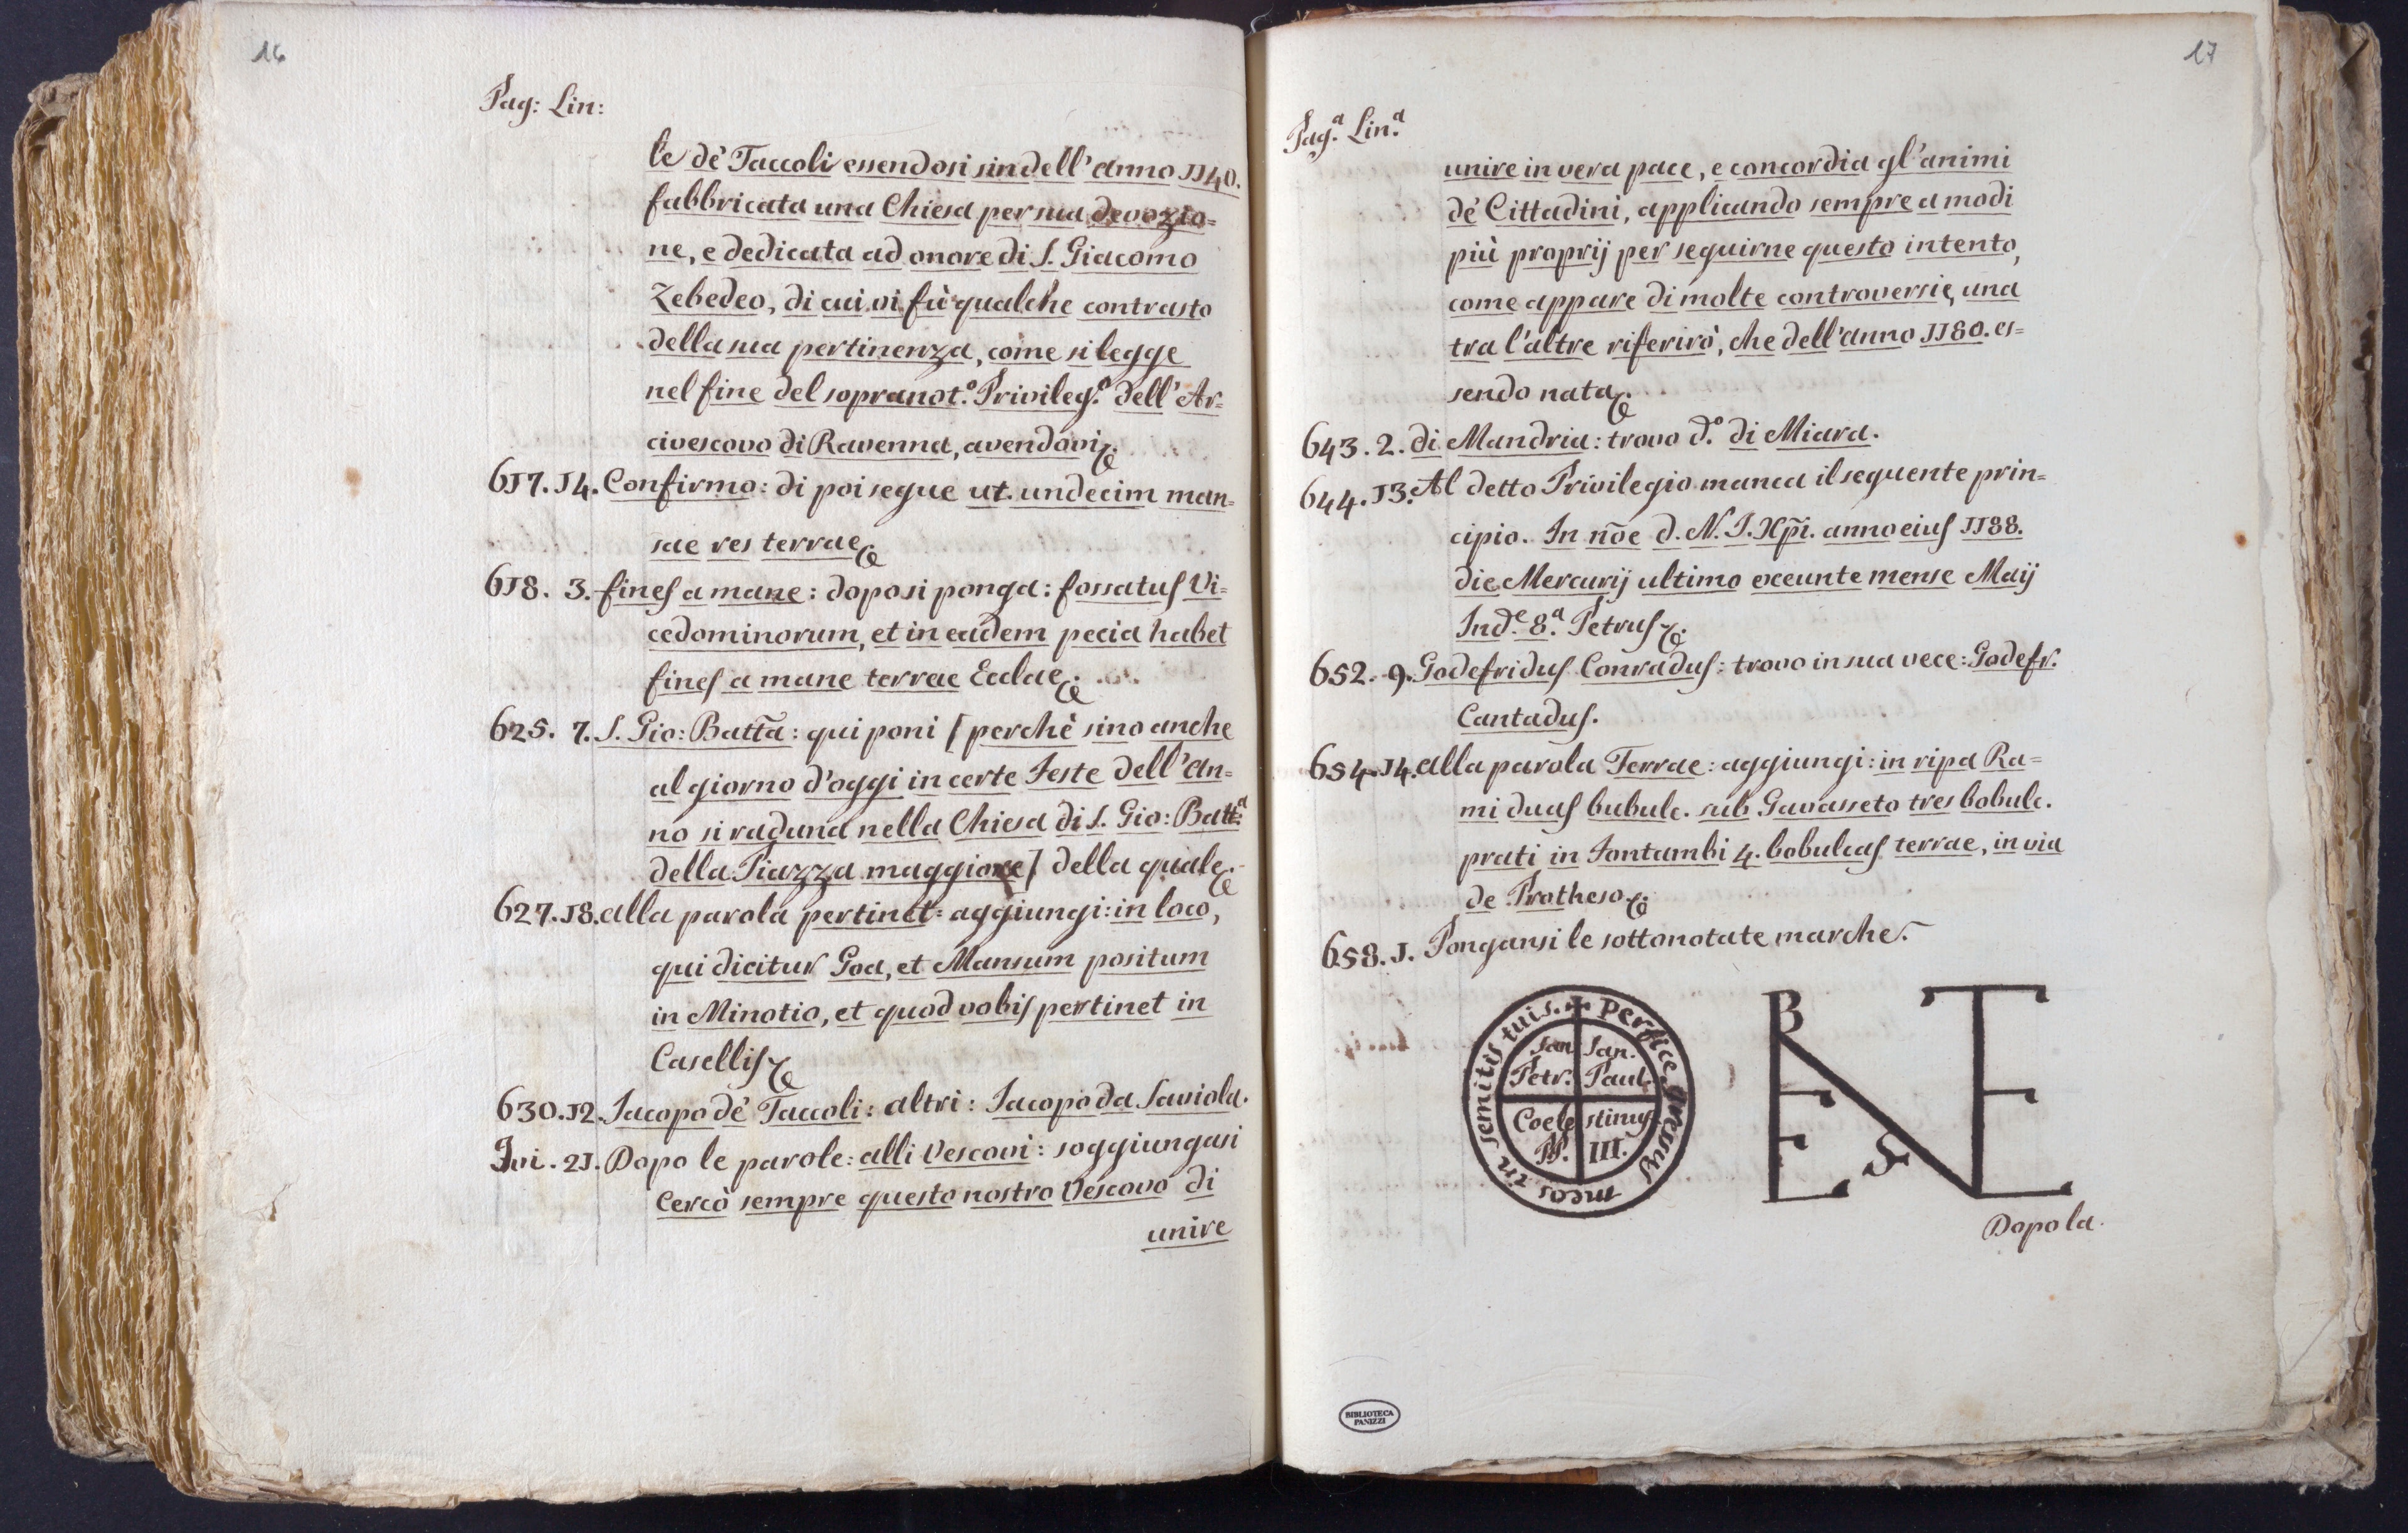 16
Pag: Lin:
le dè Taccoli essendosi sin dell'anno JJ40.
fabbricata una Chiesa per sua devozio=
ne, e dedicata ad onore di S. Giacomo
Zebedeo, di cui vi fù qualche contrasto
della sua pertinenza, come si legge
nel fine del sopranot.º Privileg.º dell'Ar=
civescovo di Ravenna, avendovi &.
6J7. J4. Confirmo: di poi segue ut. undecim man=
sae res terrae &
6J8. 3. fines a mane: dopo si ponga: fossatus Vi=
cedominorum, et in eadem pecia habet
fines a mane terrae Ecclae &.
625. 7. S. Gio: Batta: qui poni [perchè sino anche
al giorno d'oggi in certe Feste dell'An=
no si raduna nella Chiesa di S. Gio: Batt:ª
della Piazza maggiore] della quale &.
627. J8. alla parola pertinet: aggiungi: in loco,
qui dicitur Goa, et Mansum positum
in Minotio, et quod vobis pertinet in
Casellis &
630. J2. Jacopo dè Taccoli: altri: Jacopo da Saviola.
Ivi. 2J. Dopo le parole: alli Vescovi: soggiungasi
Cercò sempre questo nostro Vescovo di
unire
17
Pag.ª Lin.ª
unire in vera pace, e concordia gl'animi
dè Cittadini, applicando sempre a modi
più proprij per seguirne questo intento,
come appare di molte controversie, una
tra l'altre riferirò, che dell'anno JJ80. es=
sendo nata &.
643. 2. di Mandria: trovo d.º di Miara.
644. J3. Al detto Privilegio manca il seguente prin=
cipio. In nõe d. N. J. Xpi. anno eius JJ88.
die Mercurij ultimo exeunte mense Maij
Ind.e 8.ª Petrus &.
652. 9. Godefridus Conradus: trovo in sua vece: Godefr.
Cantadus.
654. J4. alla parola Terrae: aggiungi: in ripa Ra=
mi duas bubulc. sub Gavasseto tres bobulc.
prati in Fontambi 4. bobulcas terrae, in via
de Protheso &.
658. J. Pongansi le sottonotate marche.
✝ Perfice gressus meos in semitis tuis.
San Petr. San. Paul.
Coele stinus
PP. III.
BENE
Dopo la.
BIBLIOTECA
PANIZZI